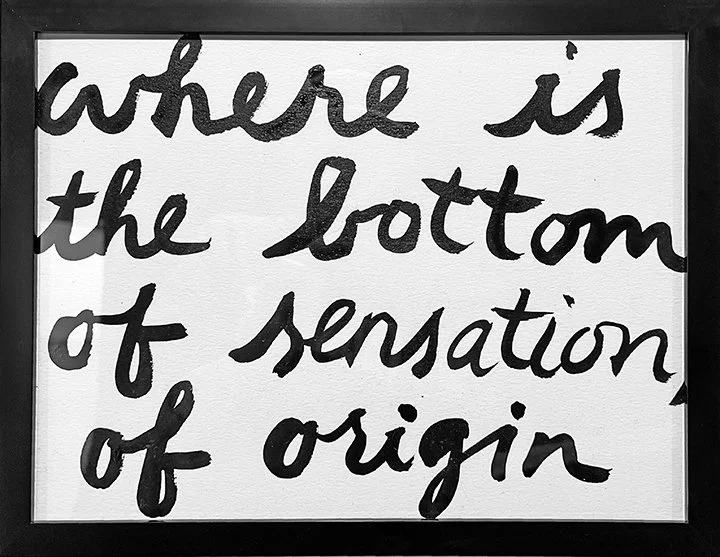 where is
the bottom
of sensation,
of origin